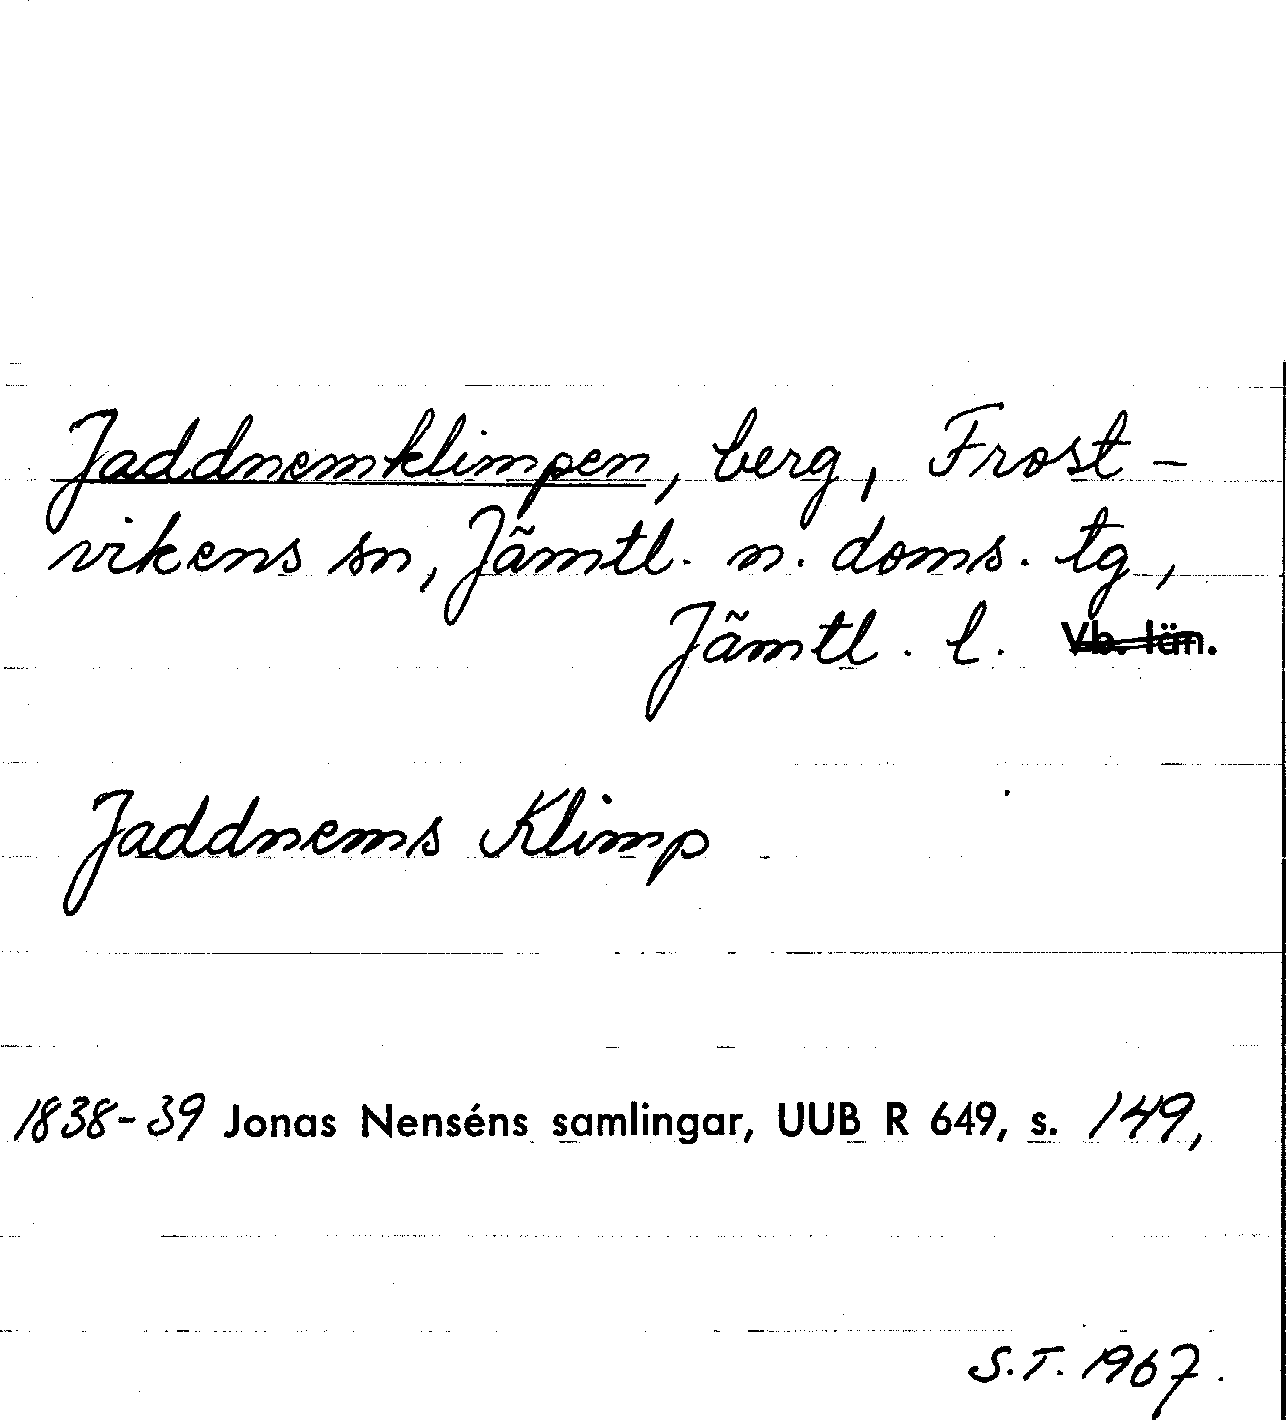 Jaddnemklimpen, berg, Frost-
vikens sn, Jämtl. n. doms. tg,
Jämtl. l. Vb. län.
Jaddnems Klimp
1838-39 Jonas Nenséns samlingar, UUB R 649, s. 149,
S.T. 1967.